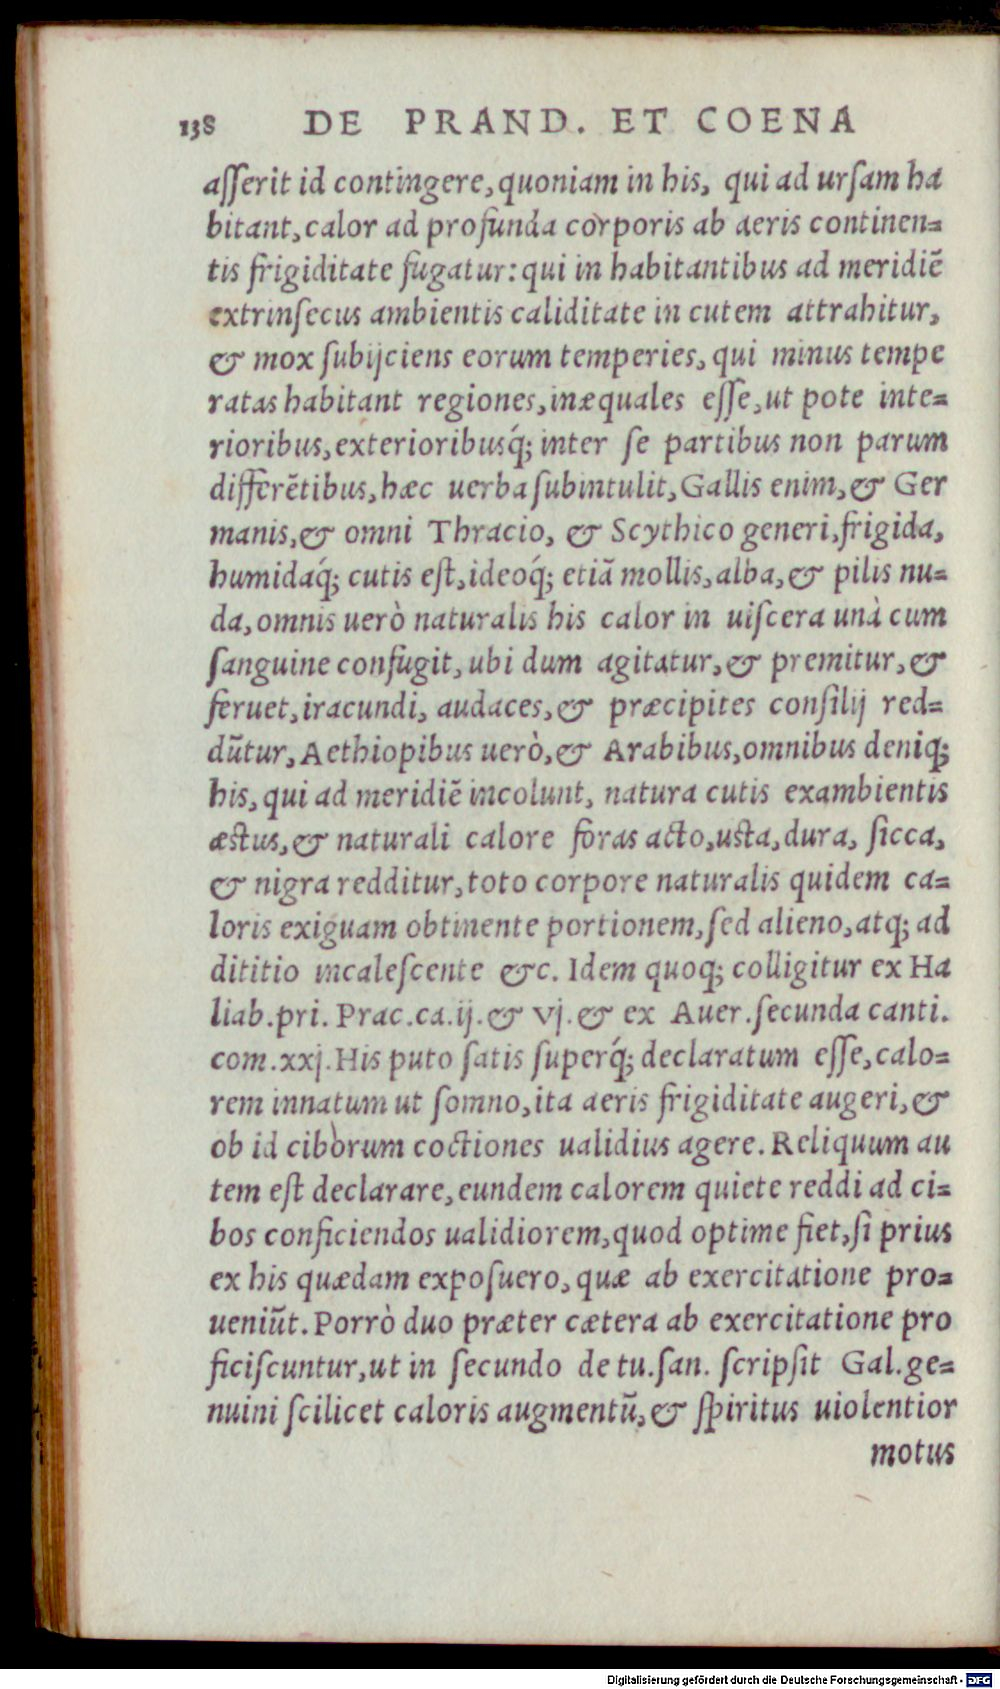 138 DE PRAND. ET COENA
aſſerit id contingere, quoniam in his, qui ad urſam ha
bitant, calor ad profunda corporis ab aeris continen=
tis frigiditate fugatur: qui in habitantibus ad meridiē
extrinſecus ambientis caliditate in cutem attrahitur,
& mox ſubijciens eorum temperies, qui minus tempe
ratas habitant regiones, inæquales eſſe, ut pote inte=
rioribus, exterioribusq́; inter ſe partibus non parum
differētibus, hæc uerba ſubintulit, Gallis enim, & Ger
manis, & omni Thracio, & Scythico generi, frigida,
humidaq́; cutis eſt, ideoq́; etiā mollis, alba, & pilis nu=
da, omnis uerò naturalis his calor in uiſcera unà cum
ſanguine confugit, ubi dum agitatur, & premitur, &
feruet, iracundi, audaces, & præcipites conſilij red=
dūtur, Aethiopibus uerò, & Arabibus, omnibus deniq;
his, qui ad meridiē incolunt, natura cutis exambientis
æstus, & naturali calore foras acto, usta, dura, ſicca,
& nigra redditur, toto corpore naturalis quidem ca=
loris exiguam obtinente portionem, ſed alieno, atq; ad
dititio incaleſcente &c. Idem quoq; colligitur ex Ha
liab. pri. Prac. ca. ij. & vj. & ex Auer. ſecunda canti.
com. xxj. His puto ſatis ſuperq́; declaratum eſſe, calo=
rem innatum ut ſomno, ita aeris frigiditate augeri, &
ob id ciborum coctiones ualidius agere. Reliquum au
tem eſt declarare, eundem calorem quiete reddi ad ci=
bos conficiendos ualidiorem, quod optime fiet, ſi prius
ex his quædam expoſuero, quæ ab exercitatione pro=
ueniūt. Porrò duo præter cætera ab exercitatione pro
ficiſcuntur, ut in ſecundo de tu. ſan. ſcripſit Gal. ge=
nuini ſcilicet caloris augmentū, & ſpiritus uiolentior
motus
Digitalisierung gefördert durch die Deutsche Forschungsgemeinschaft - DFG